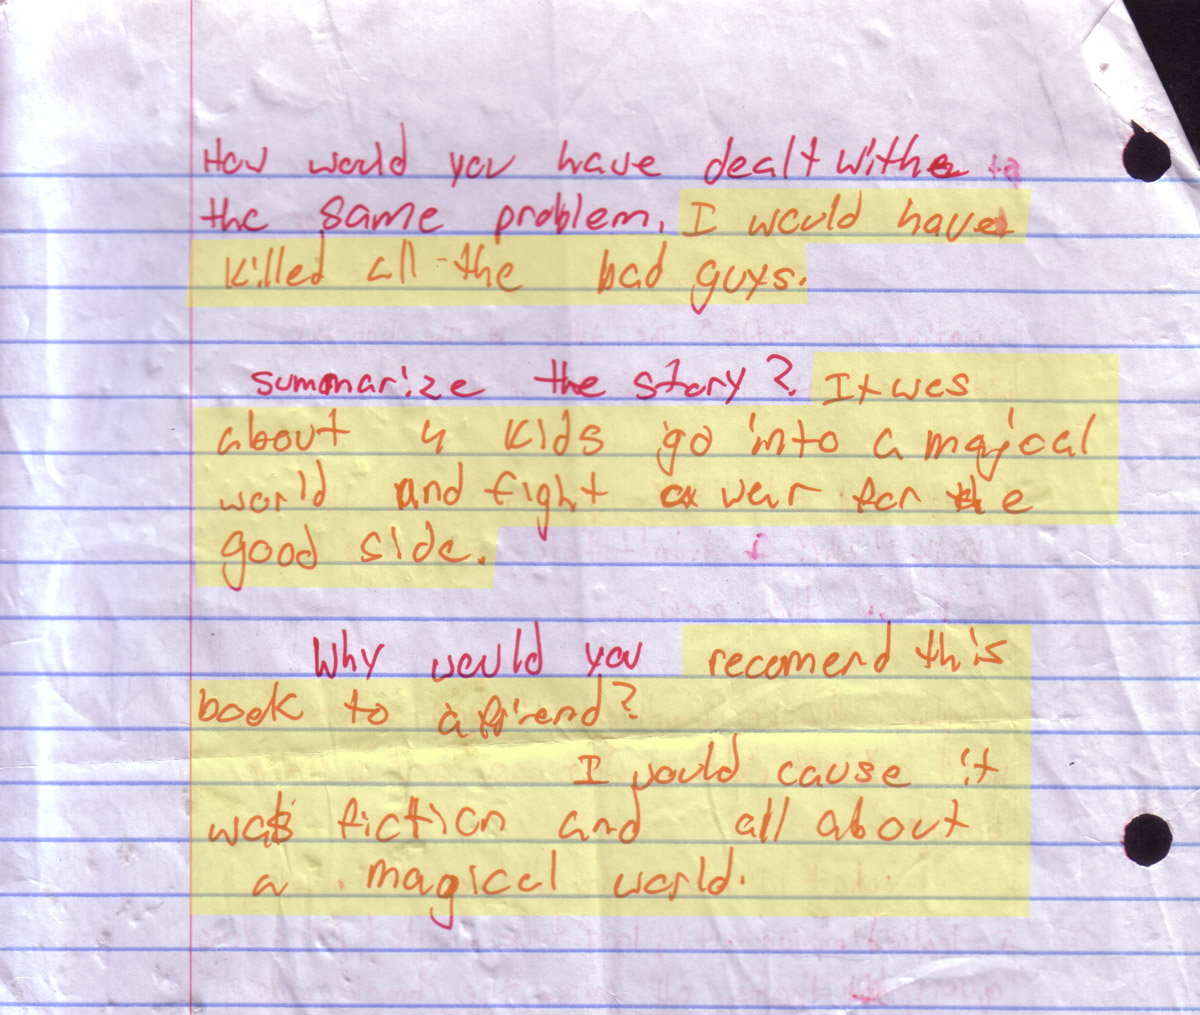 How would you have dealt withe to
the same problem. I would have
killed all the bad guys.
summarize the story? It wes
about 4 kids go into a majical
world and fight a war for the
good side.
i
Why would you recomend this
book to a friend?
I would cause it
was fiction and all about
a magical world.